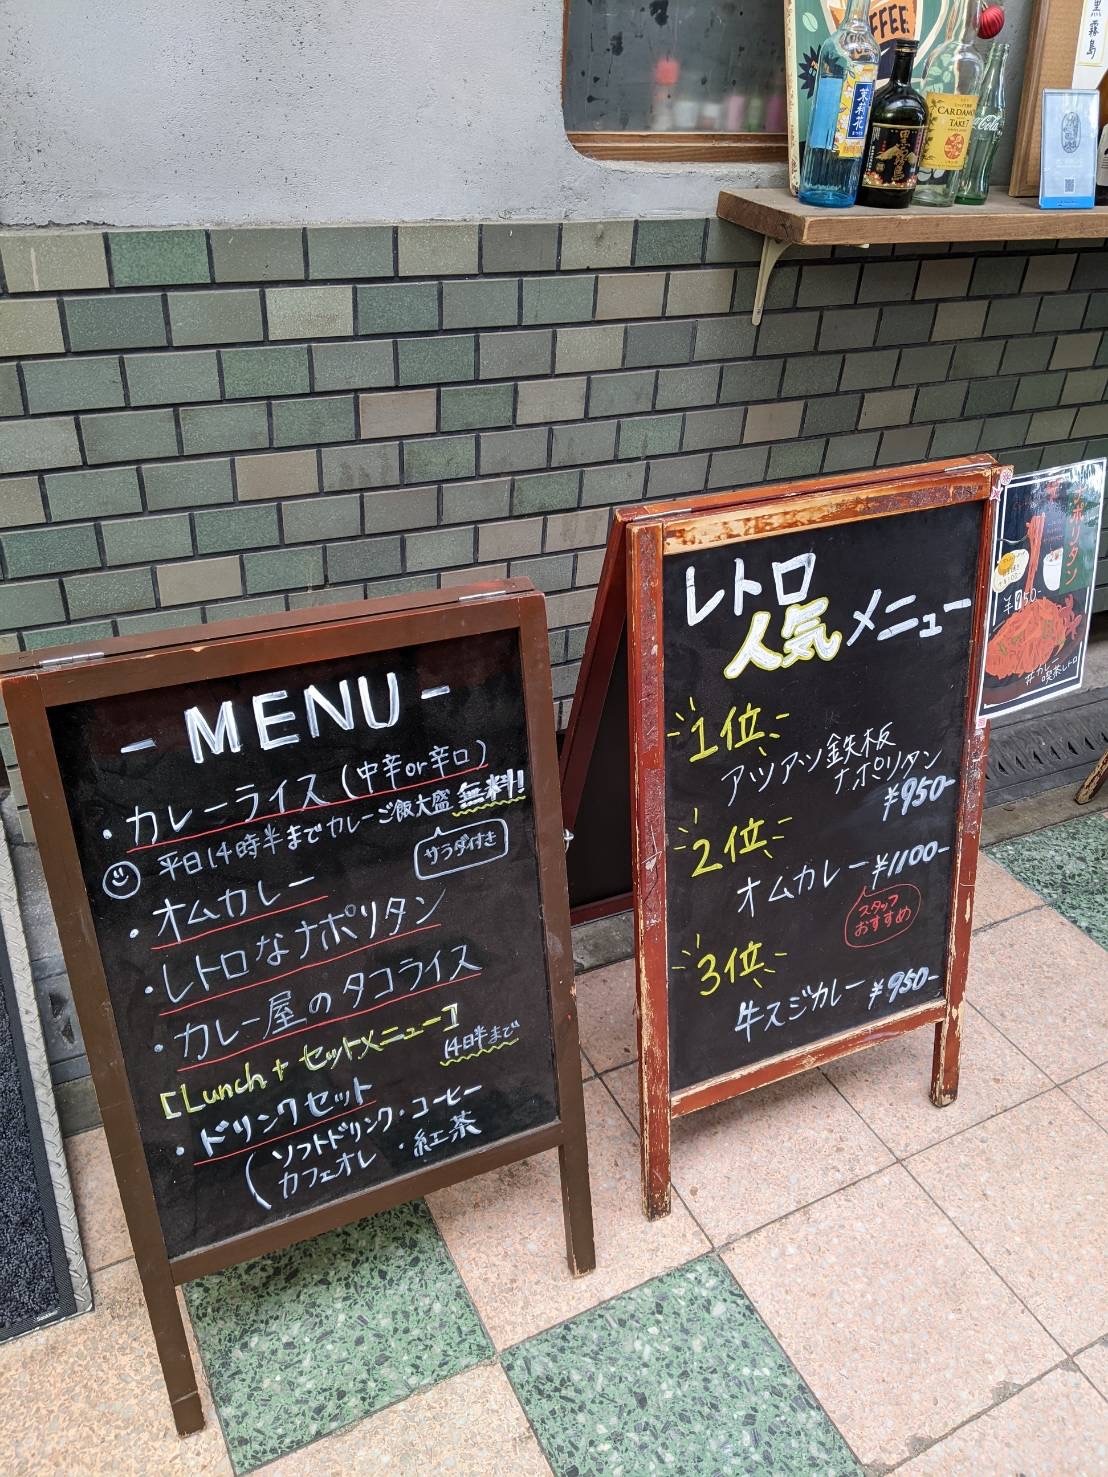 - MENU -
・カレーライス(中辛or辛口)
平日14時半までカレーご飯大盛無料!
サラダ付き
・オムカレー
・レトロなナポリタン
・カレー屋のタコライス
[Lunch+セットメニュー]
14時半まで
・ドリンクセット
(ソフトドリンク・コーヒー
カフェオレ・紅茶
レトロ
人気メニュー
1位
アツアツ鉄板
ナポリタン
¥950-
2位
オムカレー ¥1100-
スタッフ
おすすめ
3位
牛スジカレー ¥950-
ポリタン
¥950-
#カレー
喫茶レトロ
COFFEE
茉莉花
黒霧島
CARDAMON
TAKE7
Coca-Cola
黒霧島